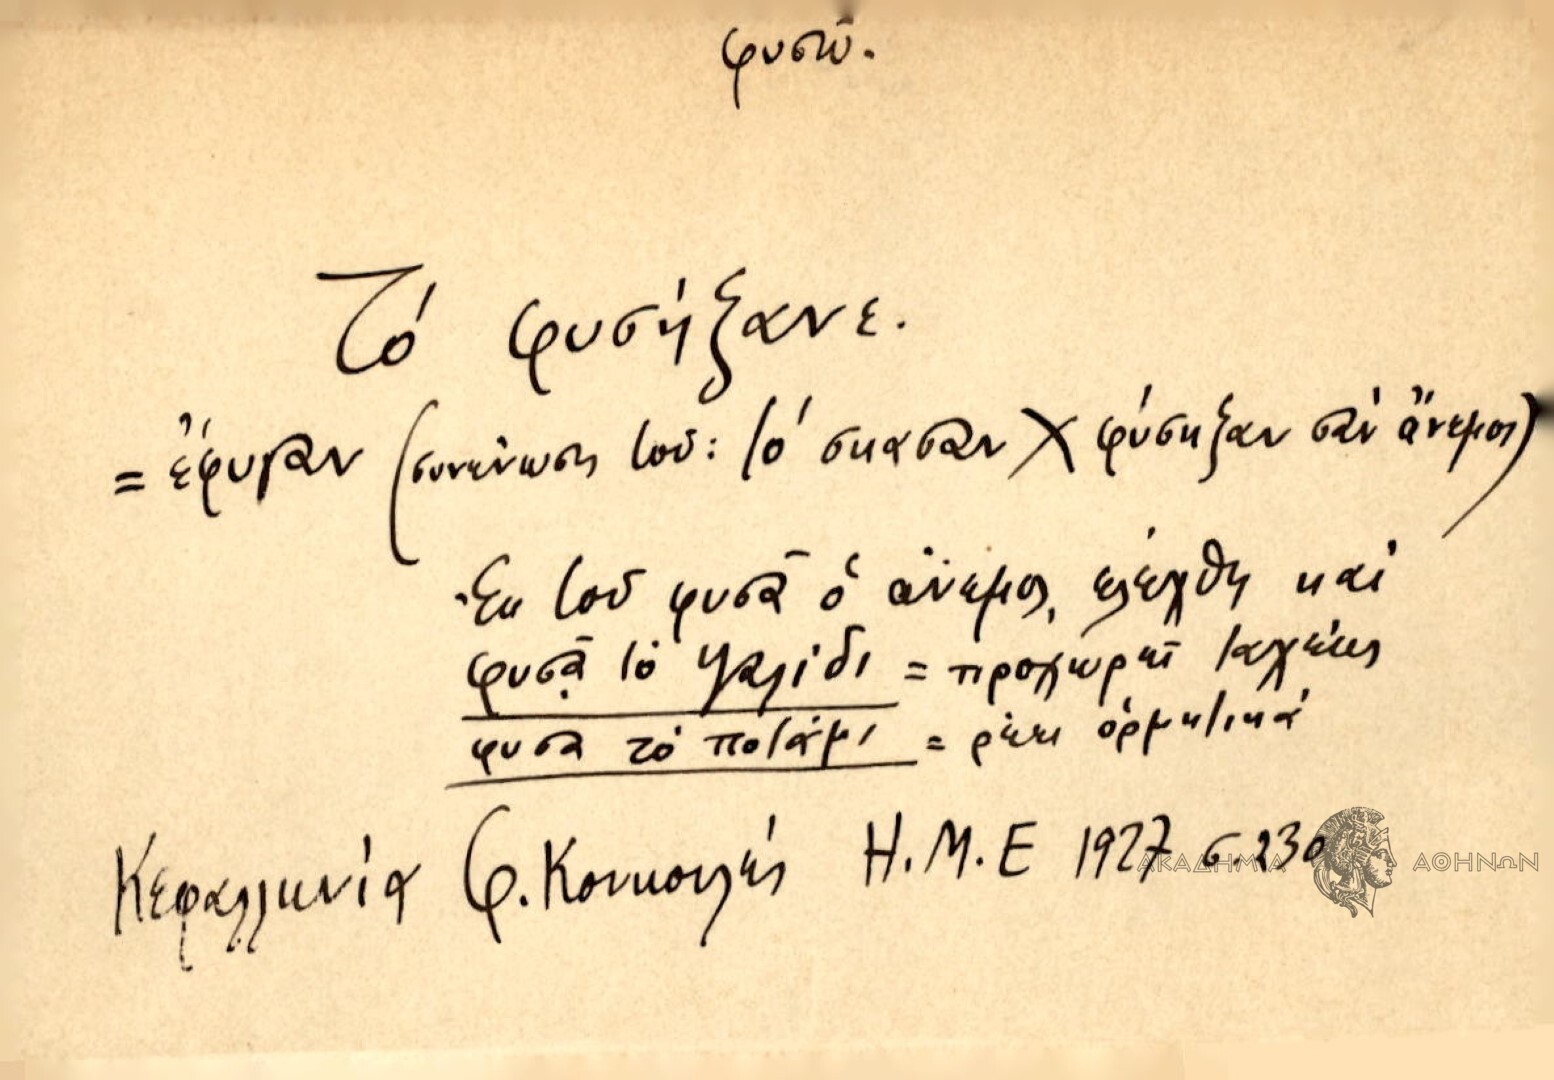 φυσῶ.
Τό φυσήξανε.
= ἔφυγαν (συνένωσις τοῦ: τό σκασαν Χ φύσηξαν σάν ἄνεμος)
Ἐκ τοῦ φυσᾶ ὁ ἄνεμος, ἐλέχθη καί
φυσᾷ τό ψαλίδι = προχωρεῖ ταχέως
φυσᾶ τό ποτάμι = ρέει ὁρμητικά
Κεφαλληνία Φ. Κουκουλές Η.Μ.Ε 1927 σ. 230
ΑΚΑΔΗΜΙΑ ΑΘΗΝΩΝ